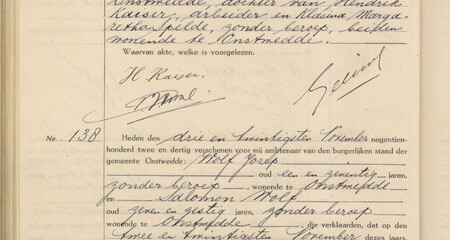 Onstwedde, dochter van Hendrik
Kaiser, arbeider en Klasina Marga-
retha Spelde, zonder beroep, beiden
wonende te Onstwedde.
Waarvan akte, welke is voorgelezen.
H. Kaiser.
No. 138
Heden den drie en twintigsten November negentien-
honderd twee en dertig verschenen voor mij ambtenaar van den burgerlijken stand der
gemeente Onstwedde: Wolf Jozep
oud een en zeventig jaren,
zonder beroep, wonende te Onstwedde
en Salomon Wolf
oud zeven en zestig jaren, zonder beroep
wonende te Onstwedde, die verklaarden, dat op den
twee en twintigsten November dezes jaars